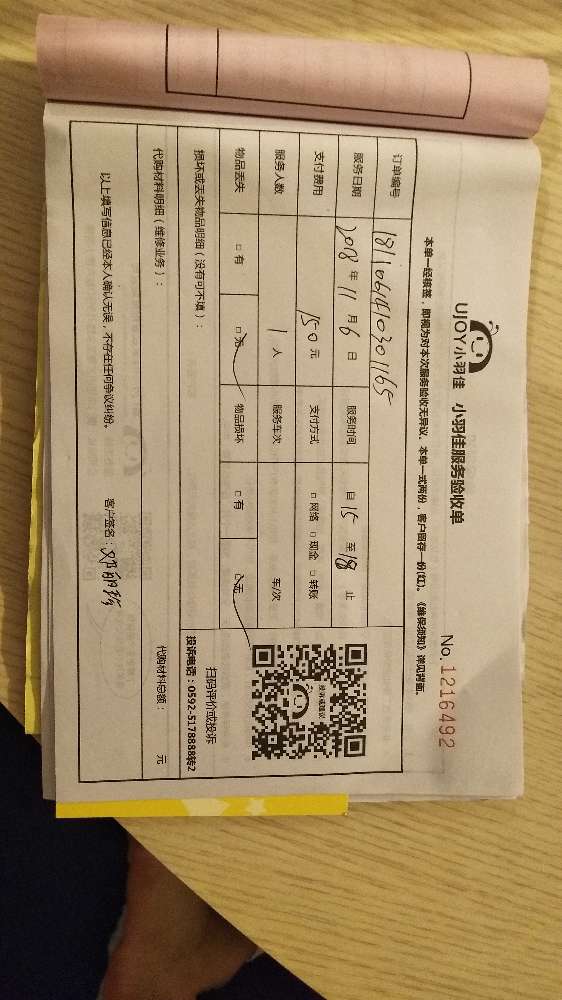 UJOY小羽佳 小羽佳服务验收单
No.1216492
本单一经核签，即视为对本次服务验收无异议。本单一式两份，客户留存一份(红)。《维保须知》详见背面。
订单编号 1811061410301165
服务日期 2018年11月6日 服务时间 自15至18止
支付费用 150元 支付方式 □网络 □现金 □转账
服务人数 1人 服务车次 车/次
物品丢失 □有 □无 物品损坏 □有 □无
扫码评价或投诉
投诉电话：0592-5178888转2
损坏或丢失物品明细（没有可不填）：
代购材料明细（维修业务）： 代购材料总额： 元
以上填写信息已经本人确认无误，不存在任何争议纠纷。 客户签名：